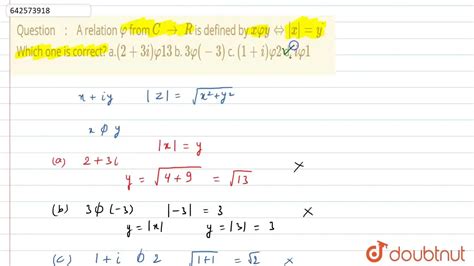 642573918
Question : A relation φ from C → R is defined by xφy ⇔ |x| = y
Which one is correct? a.(2 + 3i)φ13 b. 3φ( − 3) c.(1 + i)φ2 iφ1
x + iy |z| = √(x²+y²)
x φ y
|x| = y
(a) 2 + 3i
y = √(4+9) = √13 ×
(b) 3 φ (-3) |-3| = 3 ×
y = |x| y = |3| = 3
(c) 1 + i φ 2 √(1+1) = √2 ×
doubtnut